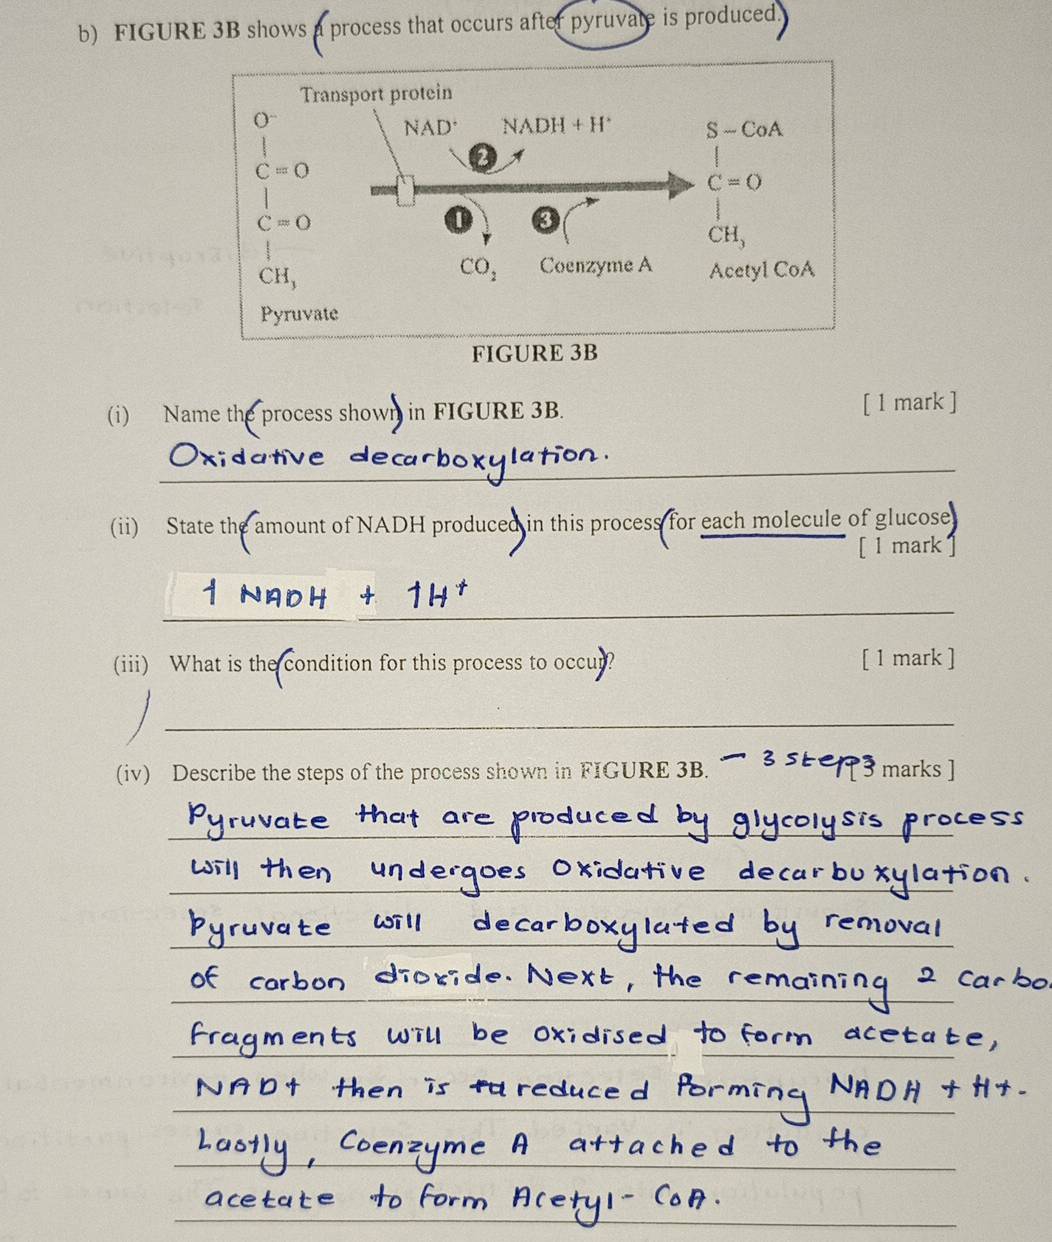 b) FIGURE 3B shows a process that occurs after pyruvate is produced.
Transport protein
O⁻
NAD⁺ NADH + H⁺
S – CoA
C = O
2
C = O
C = O
1 3
CH₃
CH₃
CO₂ Coenzyme A
Acetyl CoA
Pyruvate
FIGURE 3B
(i) Name the process shown in FIGURE 3B. [ 1 mark ]
Oxidative decarboxylation.
(ii) State the amount of NADH produced in this process for each molecule of glucose
[ 1 mark ]
1 NADH + 1H⁺
(iii) What is the condition for this process to occur? [ 1 mark ]
(iv) Describe the steps of the process shown in FIGURE 3B. – 3 steps [ 3 marks ]
Pyruvate that are produced by glycolysis process
will then undergoes oxidative decarboxylation.
Pyruvate will decarboxylated by removal
of carbon dioxide. Next, the remaining 2 carbo
fragments will be oxidised to form acetate,
NAD+ then is reduced forming NADH + H+.
Lastly, Coenzyme A attached to the
acetate to form Acetyl-CoA.